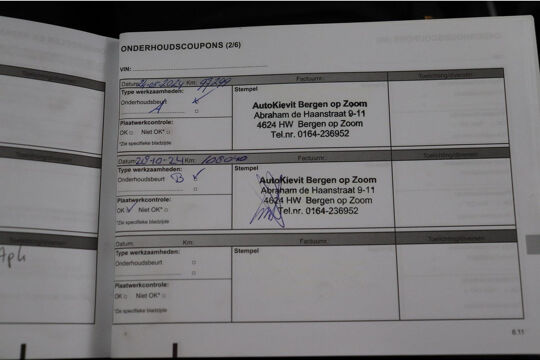 ONDERHOUDSCOUPONS (2/6)
VIN:
Datum: 24-05-2024 Km: 99299 Factuurnr.: Toelichting/diversen
Type werkzaamheden: Stempel
Onderhoudsbeurt
A
Plaatwerkcontrole:
OK Niet OK*
*Zie specifieke bladzijde
AutoKievit Bergen op Zoom
Abraham de Haanstraat 9-11
4624 HW Bergen op Zoom
Tel.nr. 0164-236952
Datum: 28-10-24 Km: Factuurnr.: Toelichting/diversen
Type werkzaamheden: Stempel
Onderhoudsbeurt B
Plaatwerkcontrole:
OK Niet OK*
*Zie specifieke bladzijde
AutoKievit Bergen op Zoom
Abraham de Haanstraat 9-11
4624 HW Bergen op Zoom
Tel.nr. 0164-236952
Datum: Km: Factuurnr.: Toelichting/diversen
Type werkzaamheden: Stempel
Onderhoudsbeurt
Plaatwerkcontrole:
OK Niet OK*
*Zie specifieke bladzijde
6.11